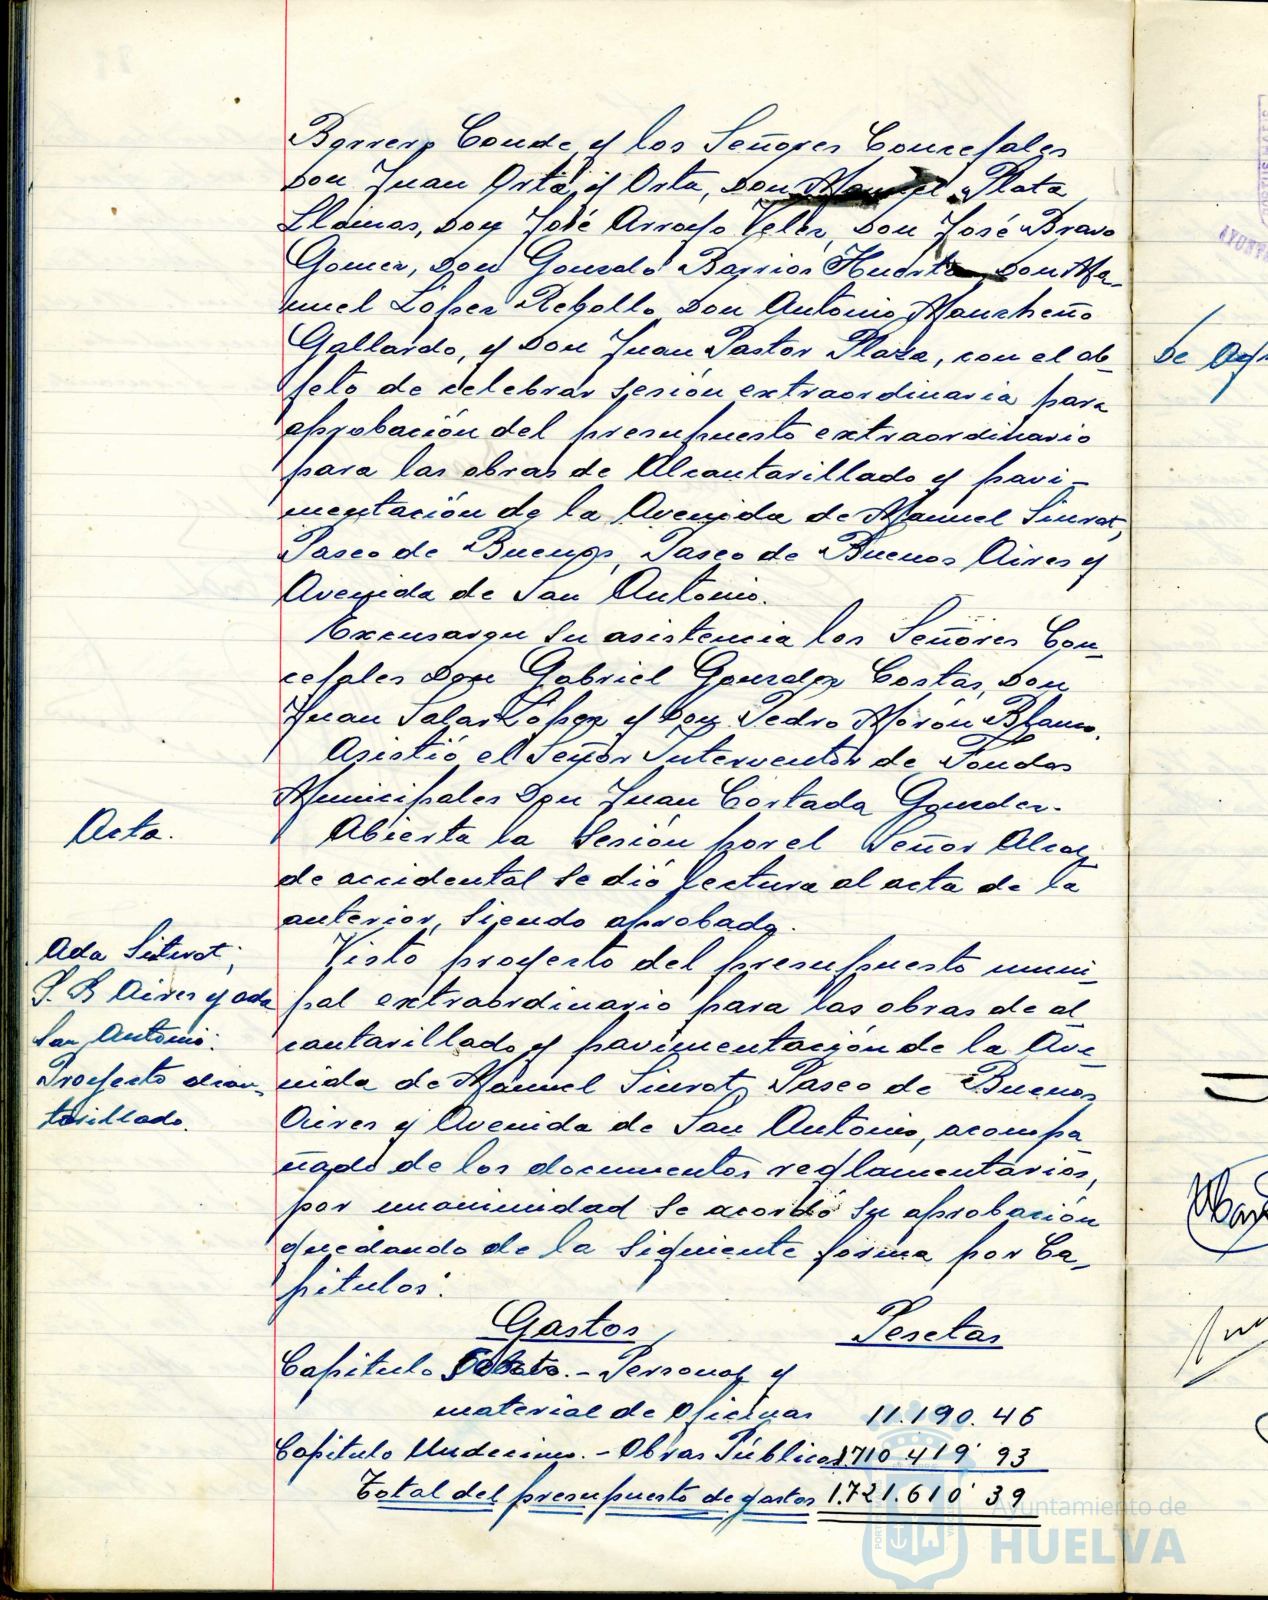 Borrero Conde, y los Señores Concejales
Don Juan Orta y Orta, Don Manuel Plata
Llamas, Don José Arroyo Velez, Don José Bravo
Gomez, Don Gonzalo Barrios Huerta, Don Ma-
nuel López Rebollo, Don Antonio Mancheño
Gallardo, y Don Juan Pastor Plaza, con el ob-
jeto de celebrar sesión extraordinaria para
aprobación del presupuesto extraordinario
para las obras de Alcantarillado y pavi-
mentación de la Avenida de Manuel Siurot,
Paseo de Buenos, Paseo de Buenos Aires y
Avenida de San Antonio.
Excusaron su asistencia los Señores Con-
cejales Don Gabriel Gonzalez Costas, Don
Juan Salas López y Don Pedro Morón Blanco.
Asistió el Señor Interventor de Fondos
Municipales Don Juan Cortada Gonzlez.
Acta.
Abierta la Sesión por el Señor Alcal
de accidental se dió lectura al acta de la
anterior, siendo aprobada.
Ada Siurot,
P. B Aires y ada
San Antonio.
Proyecto alcan-
tarillado.
Visto proyecto del presupuesto muni-
pal extraordinario para las obras de al
cantarillado y pavimentación de la Ave
nida de Manuel Siurot, Paseo de Buenos
Aires y Avenida de San Antonio, acompa
ñado de los documentos reglamentarios,
por unanimidad se acordó su aprobación
quedando de la siguiente forma por Ca-
pitulos:
Gastos Pesetas
Capitulo .- Personal y
material de Oficinas 11.190.46
Capitulo Undecimo.- Obras Públicas 1.710.419'93
Total del presupuesto de gastos 1.721.610'39
De
Ayuntamiento de
HUELVA